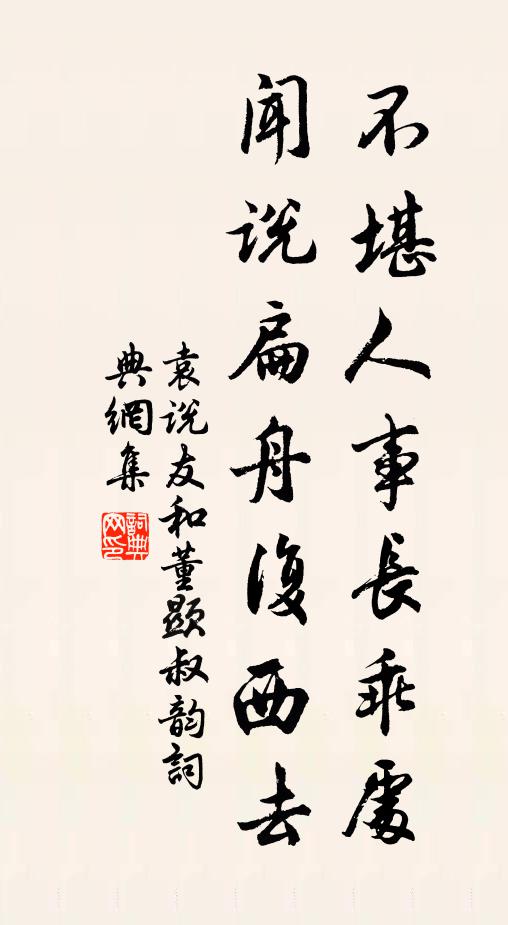 不堪人事長乖處
聞说扁舟復西去
袁说友和董顯叔韵詞
典網集
詞典
网印